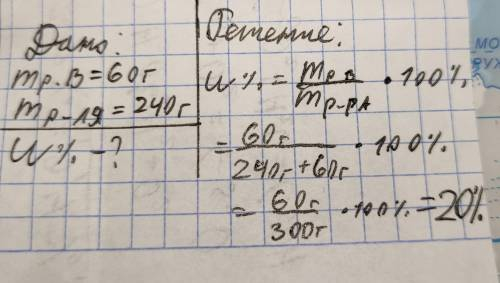 Дано:
mр.в = 60г
mр-ля = 240г
W% - ?
Решение:
W% = mр.в / mр-ра • 100%
= 60г / 240г+60г • 100%
= 60г / 300г • 100% = 20%
МО
РУЖ